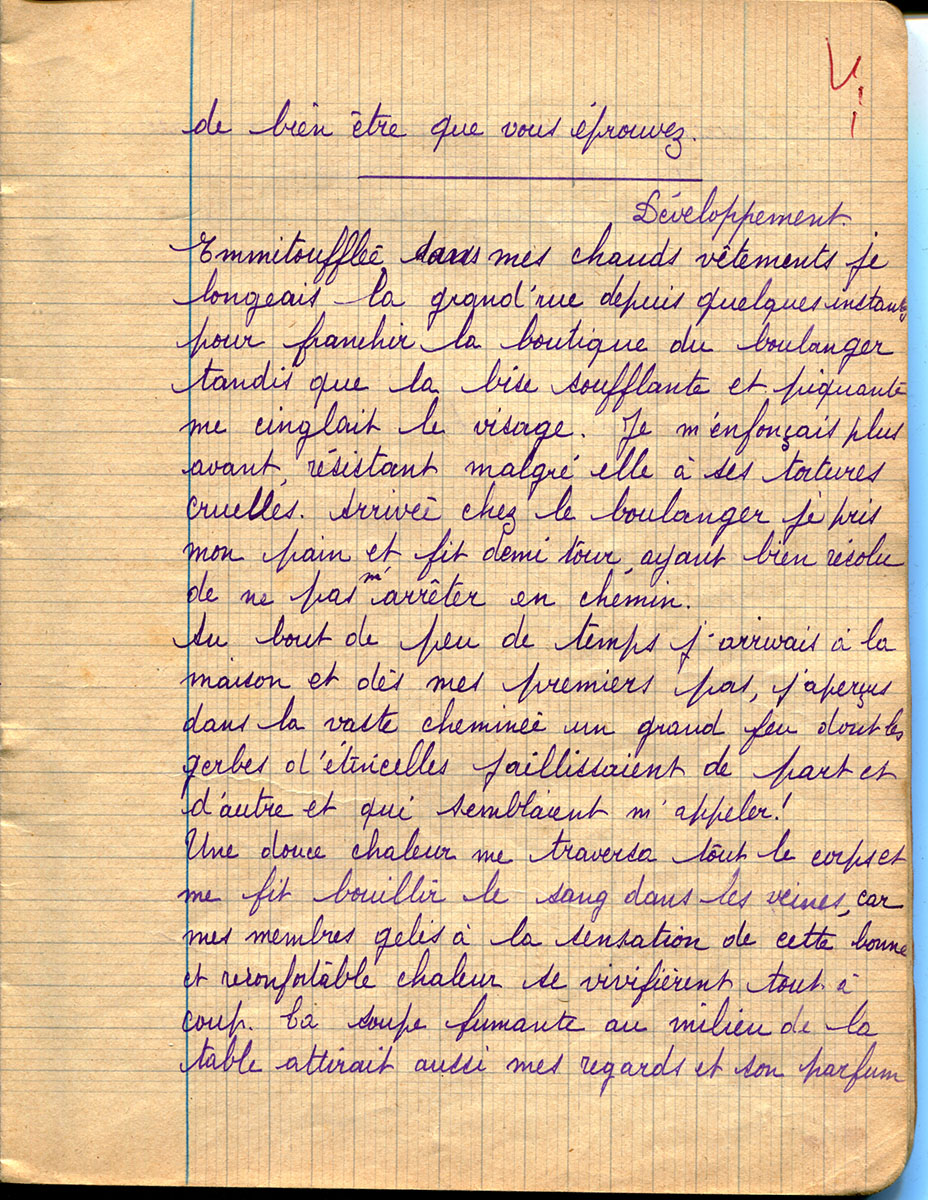 de bien être que vous éprouvez.
Développement.
Emmitoufflée dans mes chauds vêtements je
longeais la grand'rue depuis quelques instants
pour franchir la boutique du boulanger
tandis que la bise soufflante et piquante
me cinglait le visage. Je m'enfonçais plus
avant, résistant malgré elle à ses tortures
cruelles. Arrivée chez le boulanger je pris
mon pain et fit demi tour, ayant bien résolu
de ne pas m'arrêter en chemin.
Au bout de peu de temps j'arrivais à la
maison et dès mes premiers pas, j'aperçus
dans la vaste cheminée un grand feu dont les
gerbes d'étincelles jaillissaient de part et
d'autre et qui semblaient m'appeler!
Une douce chaleur me traversa tout le corps et
me fit bouillir le sang dans les veines, car
mes membres gelés à la sensation de cette bonne
et reconfortable chaleur se vivifièrent tout à
coup. La soupe fumante au milieu de la
table attirait aussi mes regards et son parfum